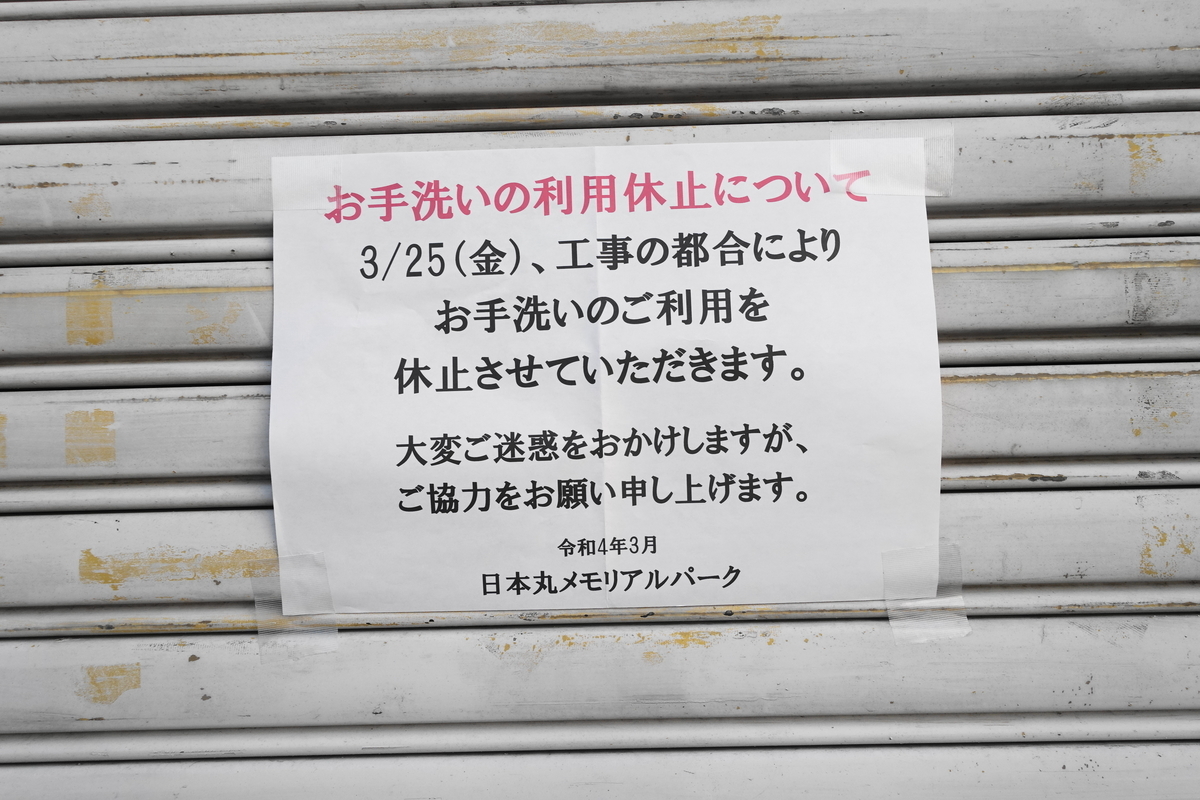 お手洗いの利用休止について
3/25(金)、工事の都合により
お手洗いのご利用を
休止させていただきます。
大変ご迷惑をおかけしますが、
ご協力をお願い申し上げます。
令和4年3月
日本丸メモリアルパーク